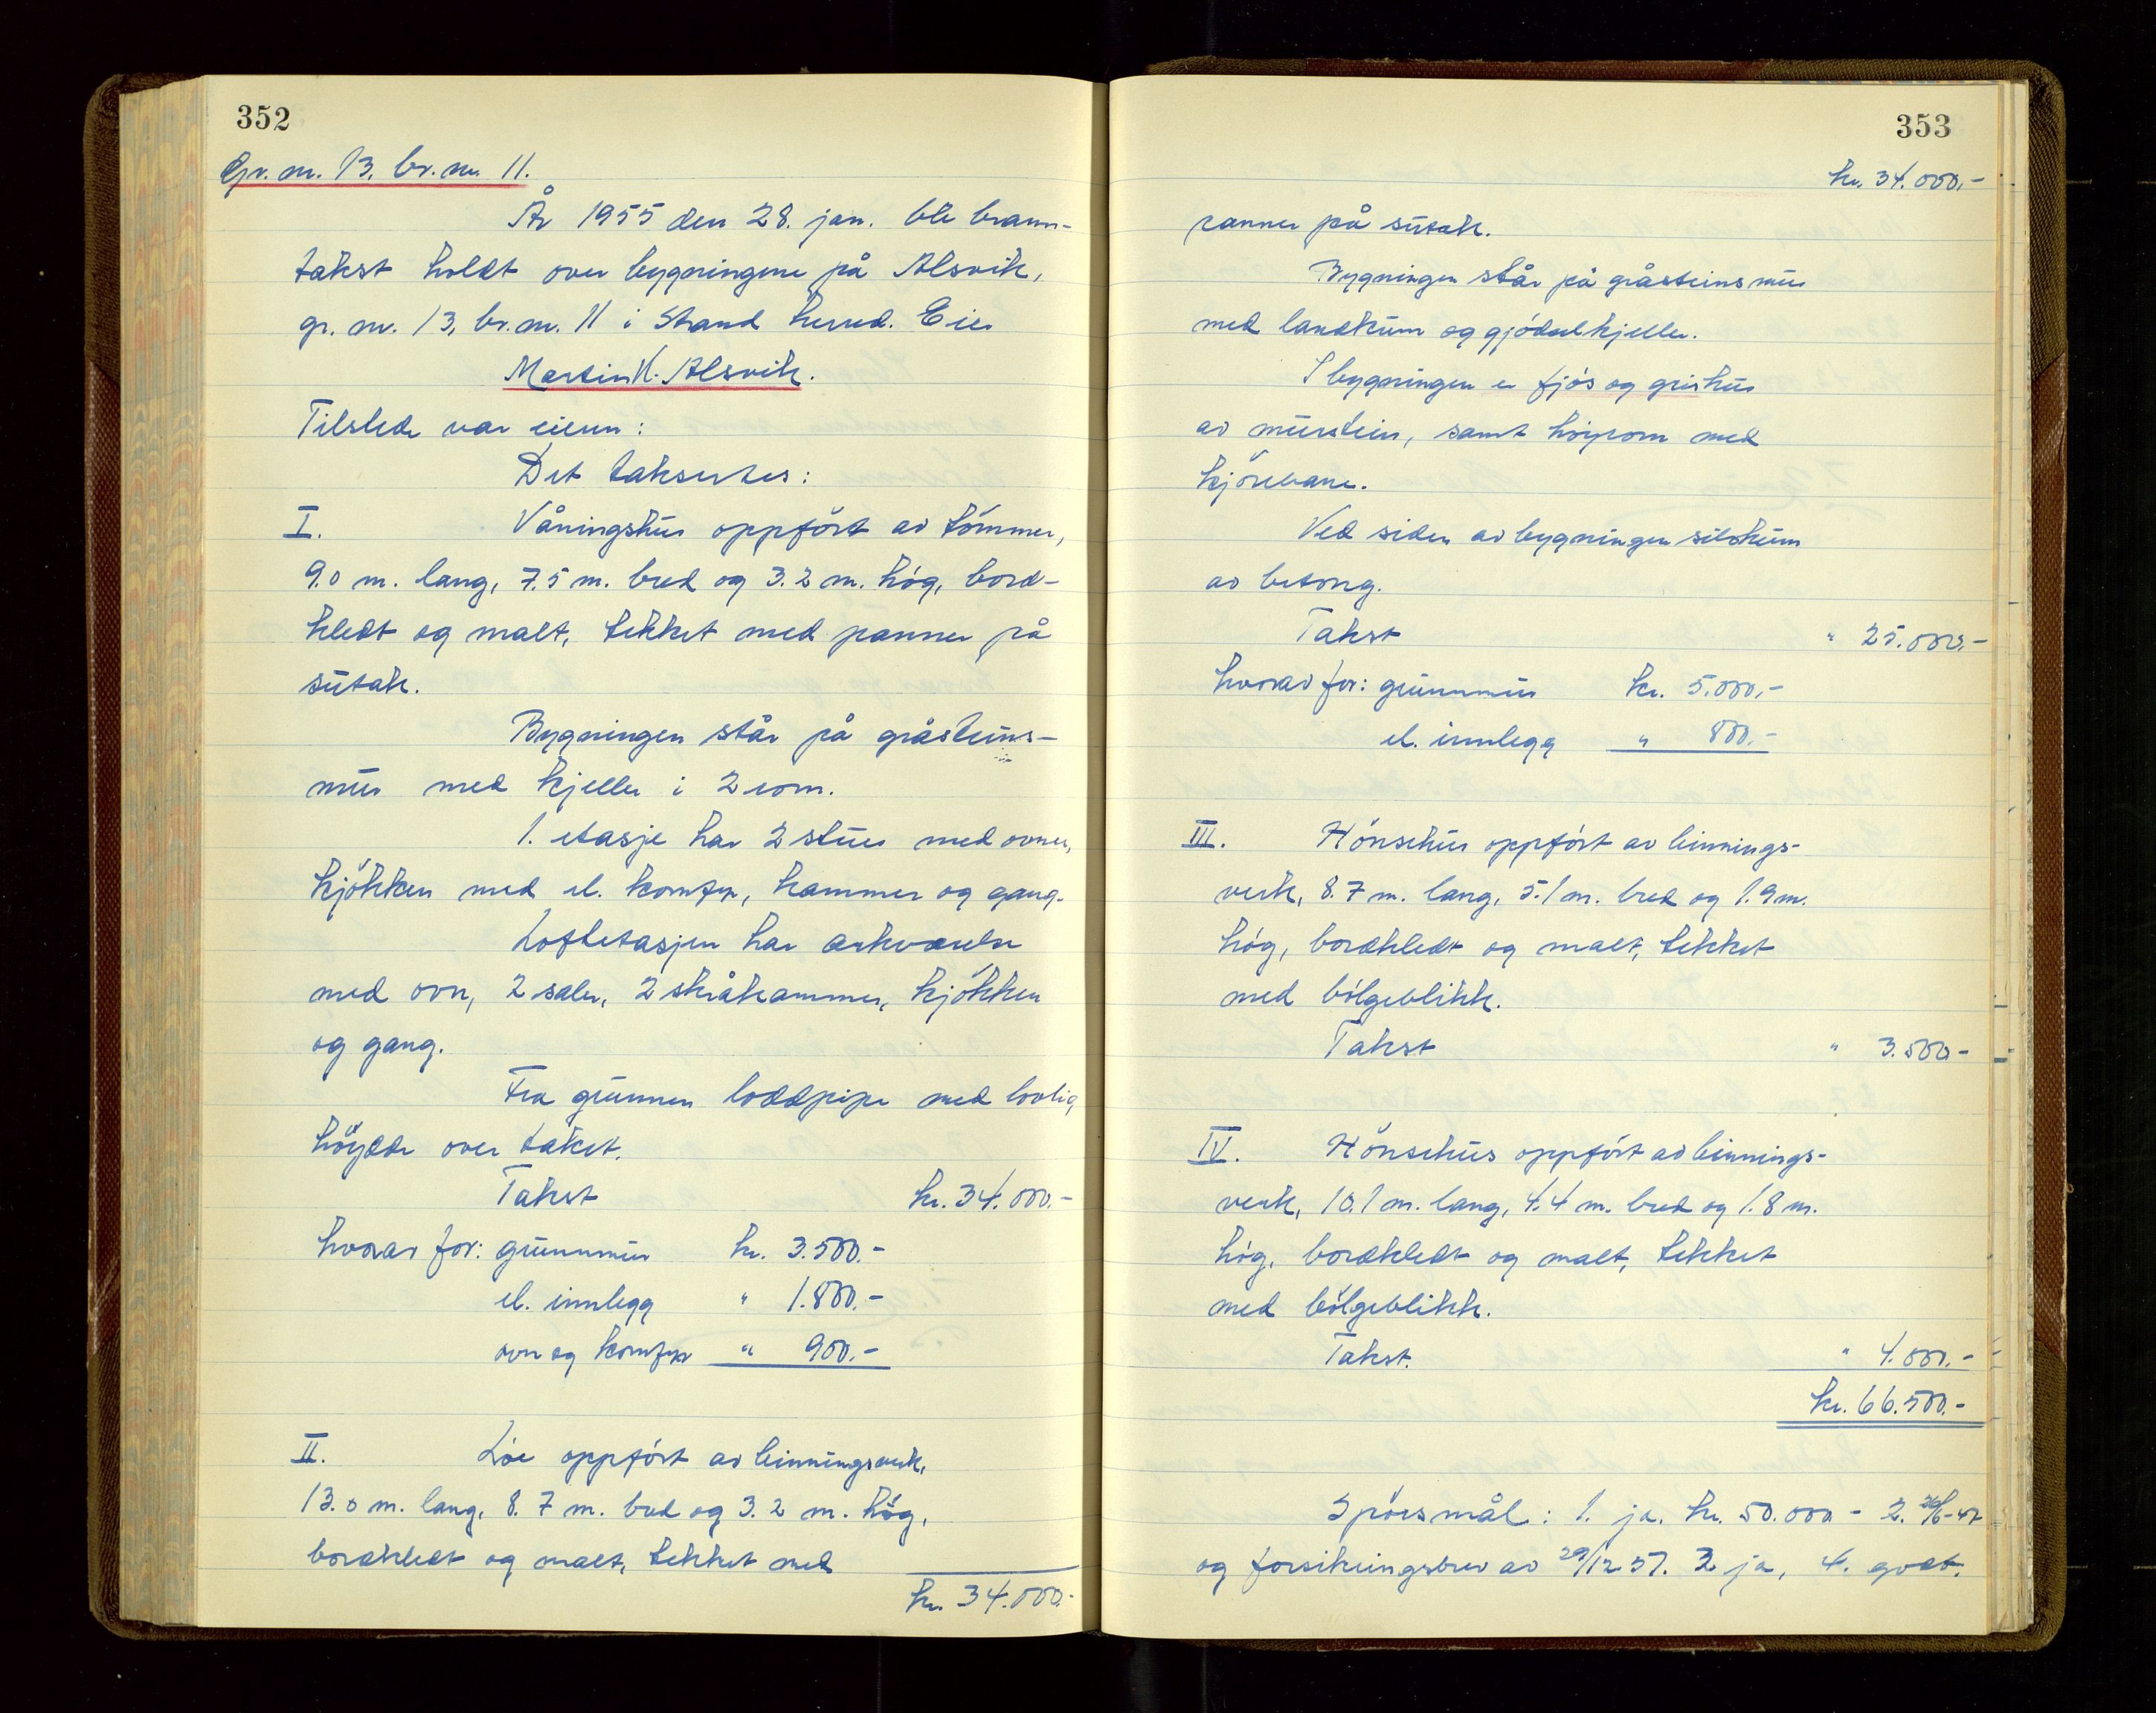 352
Gr. nr. 13, br. nr. 11.
År 1955 den 28. jan. ble brann-
takst holdt over bygningene på Alsvik,
gr. nr. 13, br. nr. 11 i Strand herred. Eier
Martin H. Alsvik.
Tilstede var eieren:
Det takseres:
I. Våningshus oppført av tømmer,
9.0 m. lang, 7.5 m. bred og 3.2 m. høg, bord-
kledt og malt, tekket med panner på
sutak.
Bygningen står på gråsteins-
mur med kjeller i 2 rom.
1. etasje har 2 stuer med ovner,
kjøkken med el. komfyr, kammer og gang.
Loftetasjen har arkværelse
med ovn, 2 saler, 2 skråkammer, kjøkken
og gang.
Fra grunnen loddpipe med lovlig
høyde over taket.
Takst kr. 34.000.-
hvorav for: grunnmur kr. 3.500.-
el. innlegg " 1.800.-
ovn og komfyr " 900.-
II. Løe oppført av binningsverk,
13.0 m. lang, 8.7 m. bred og 3.2 m. høg,
bordkledt og malt, tekket med
kr. 34.000.-
353
kr. 34.000,-
panner på sutak.
Bygningen står på gråsteinsmur
med landkum og gjødselkjeller.
I bygningen er fjøs og grishus
av murstein, samt høyrom med
kjørebane.
Ved siden av bygningen silokum
av betong.
Takst " 25.000,-
hvorav for: grunnmur kr. 5.000,-
el. innlegg " 800.-
III. Hønsehus oppført av binnings-
verk, 8.7 m. lang, 5.1 m. bred og 1.9 m.
høg, bordkledt og malt, tekket
med bølgeblikk.
Takst " 3.500-
IV. Hønsehus oppført av binnings-
verk, 10.1 m. lang, 4.4 m. bred og 1.8 m.
høg, bordkledt og malt, tekket
med bølgeblikk.
Takst. " 4.000.-
kr. 66.500.-
Spørsmål: 1. ja. kr. 50.000 - 2.
og forsikringsbrev av 29/12 51. 3 ja, 4. godt.